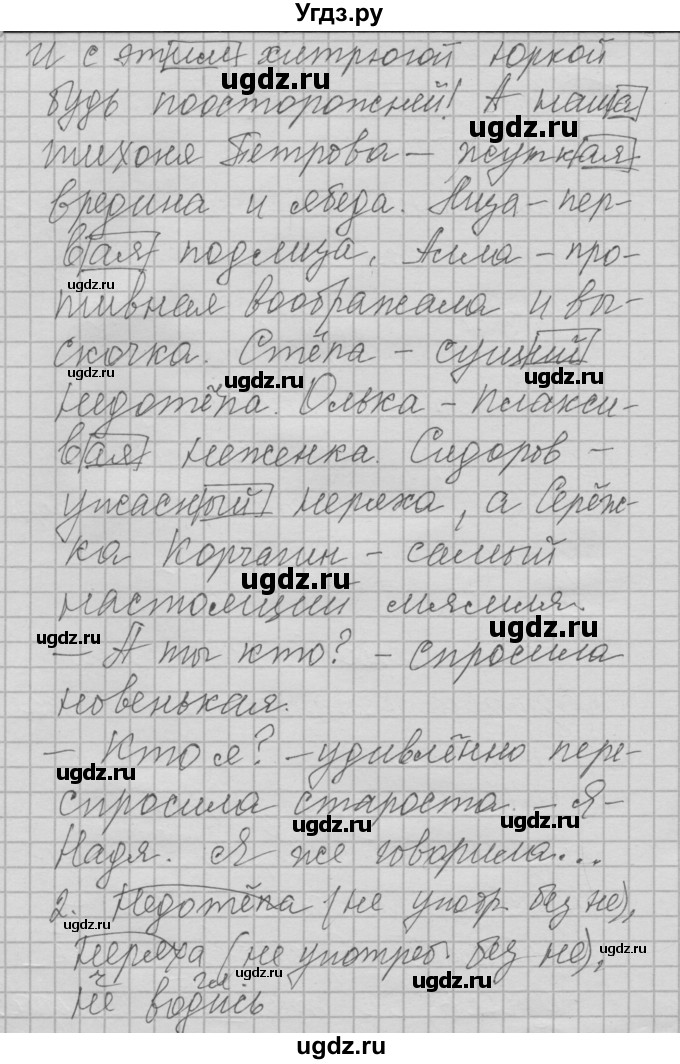 Угдз.ру
И с этим хитрюгой Юркой
будь поосторожней! А наша
тихоня Петрова – жуткая
вредина и ябеда. Низа – пер-
вая подлиза, Алла – про-
тивная воображала и вы-
скочка. Стёпа – сущий
недотёпа. Олька – плакси-
вая неженка. Сидоров –
ужасный неряха, а Серёж-
ка Корчагин – самый
настоящий мямля.
– А ты кто? – спросила
новенькая.
– Кто я? – удивлённо пере-
спросила староста. – Я –
Надя. Я же говорила...
2. Недотёпа (не употр. без не),
Неряха (не употреб без не),
ч гл
не водись
ugdz.ru